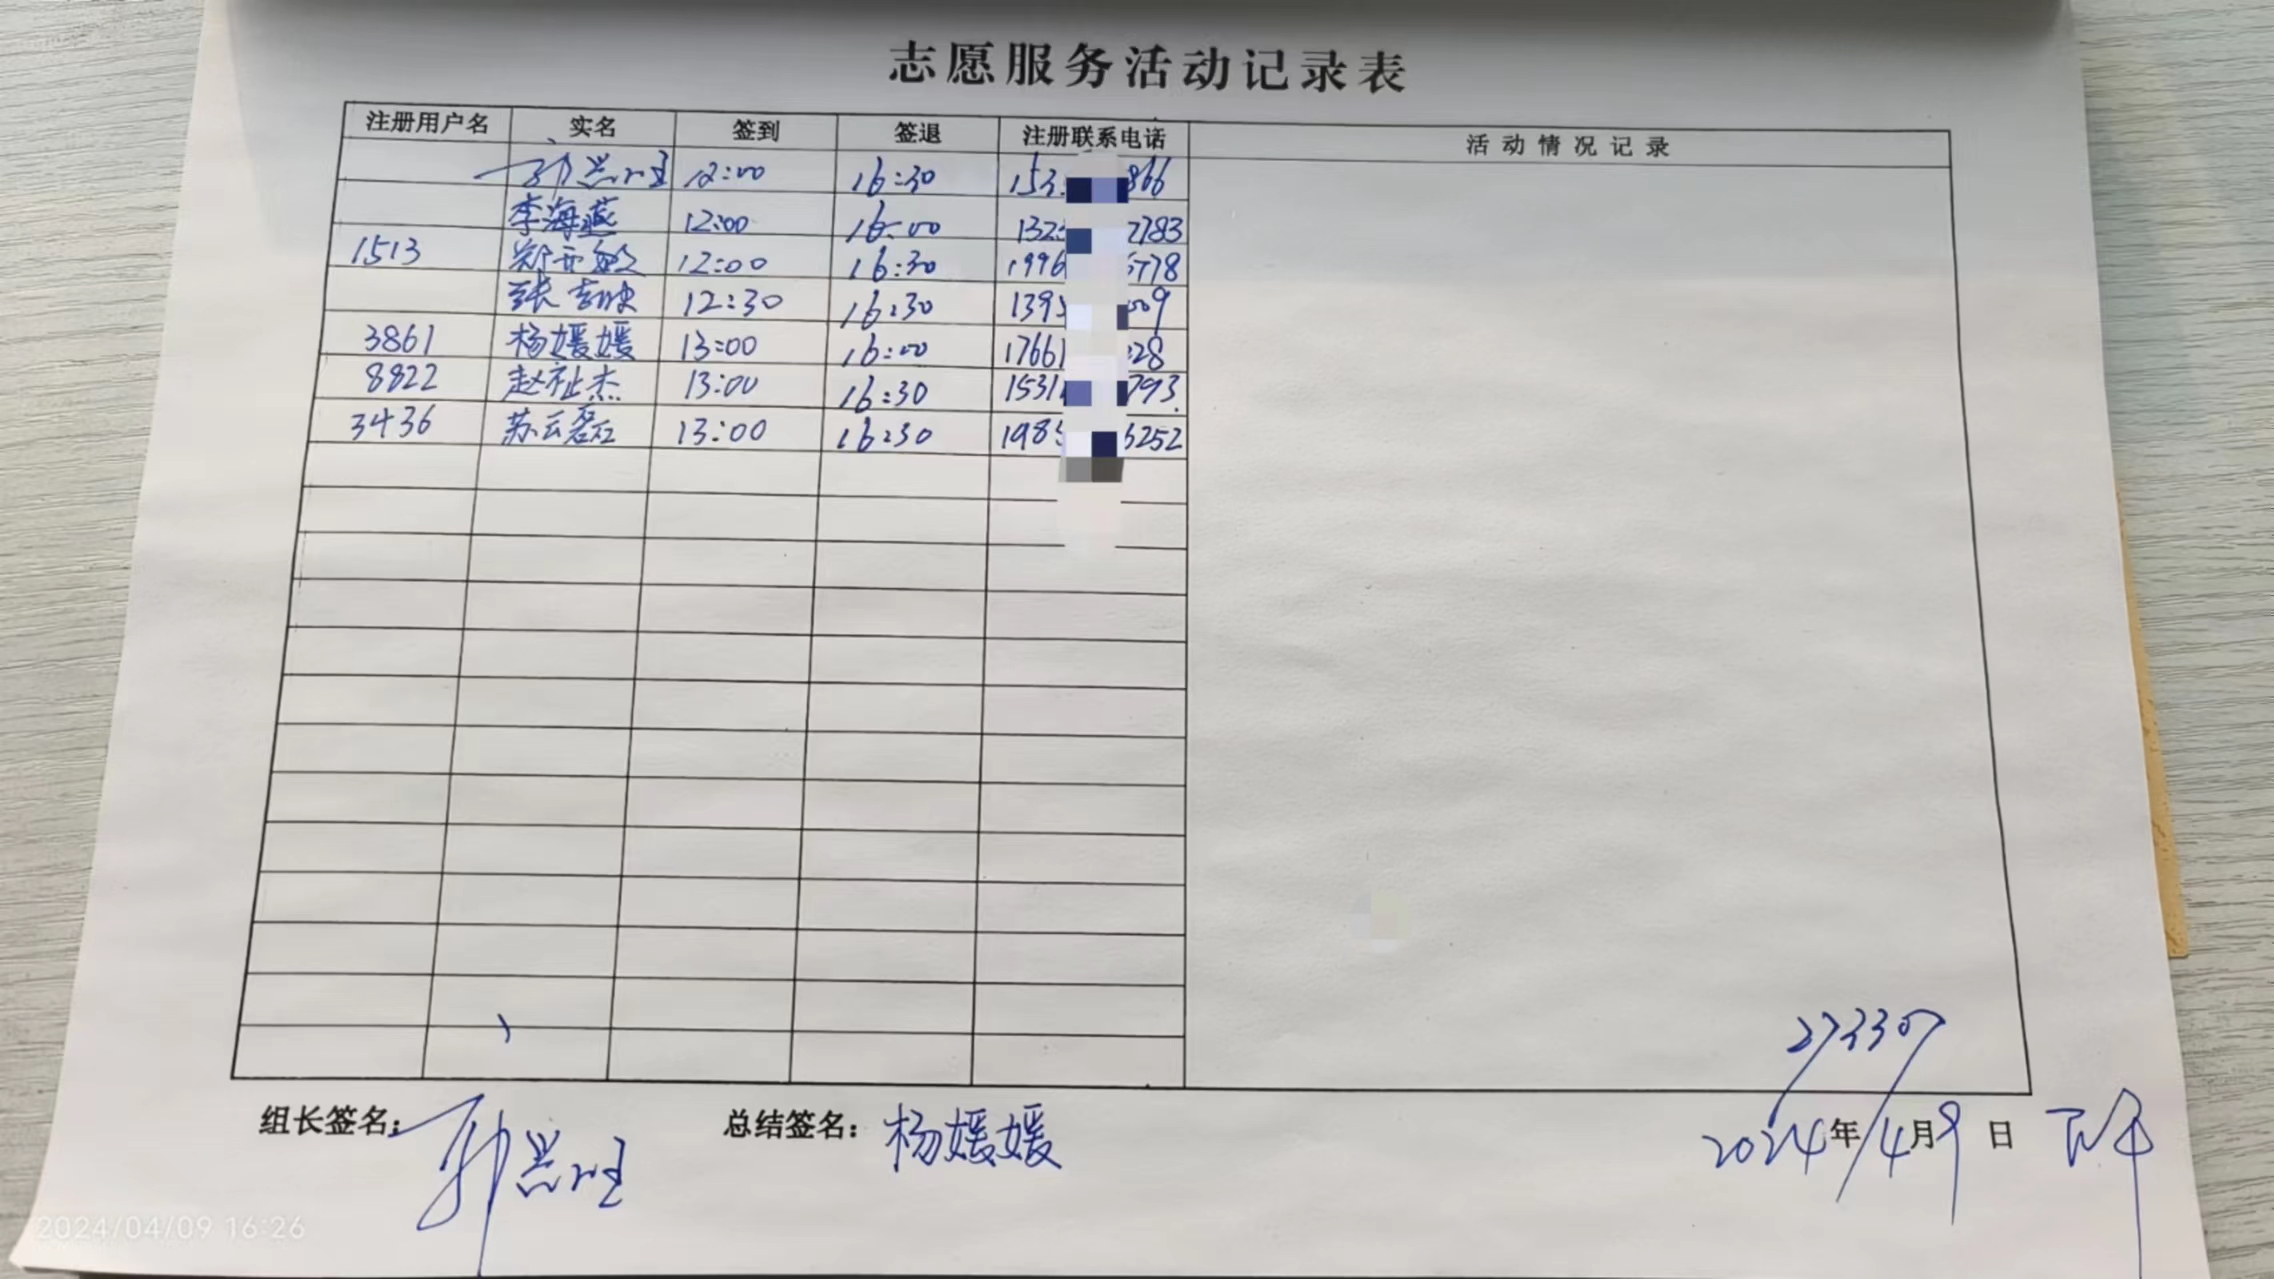 志愿服务活动记录表
注册用户名 实名 签到 签退 注册联系电话 活动情况记录
12:00 16:30 153 866
李海燕 12:00 16:00 132 2783
1513 郑亚敏 12:00 16:30 1996 5778
张 12:30 16:30 139 009
3861 杨媛媛 13:00 16:00 17661 228
8822 赵祉杰 13:00 16:30 1531 793
3436 苏云磊 13:00 16:30 198 6252
273307
组长签名: 总结签名: 杨媛媛 2024年4月9日 下午
2024/04/09 16:26